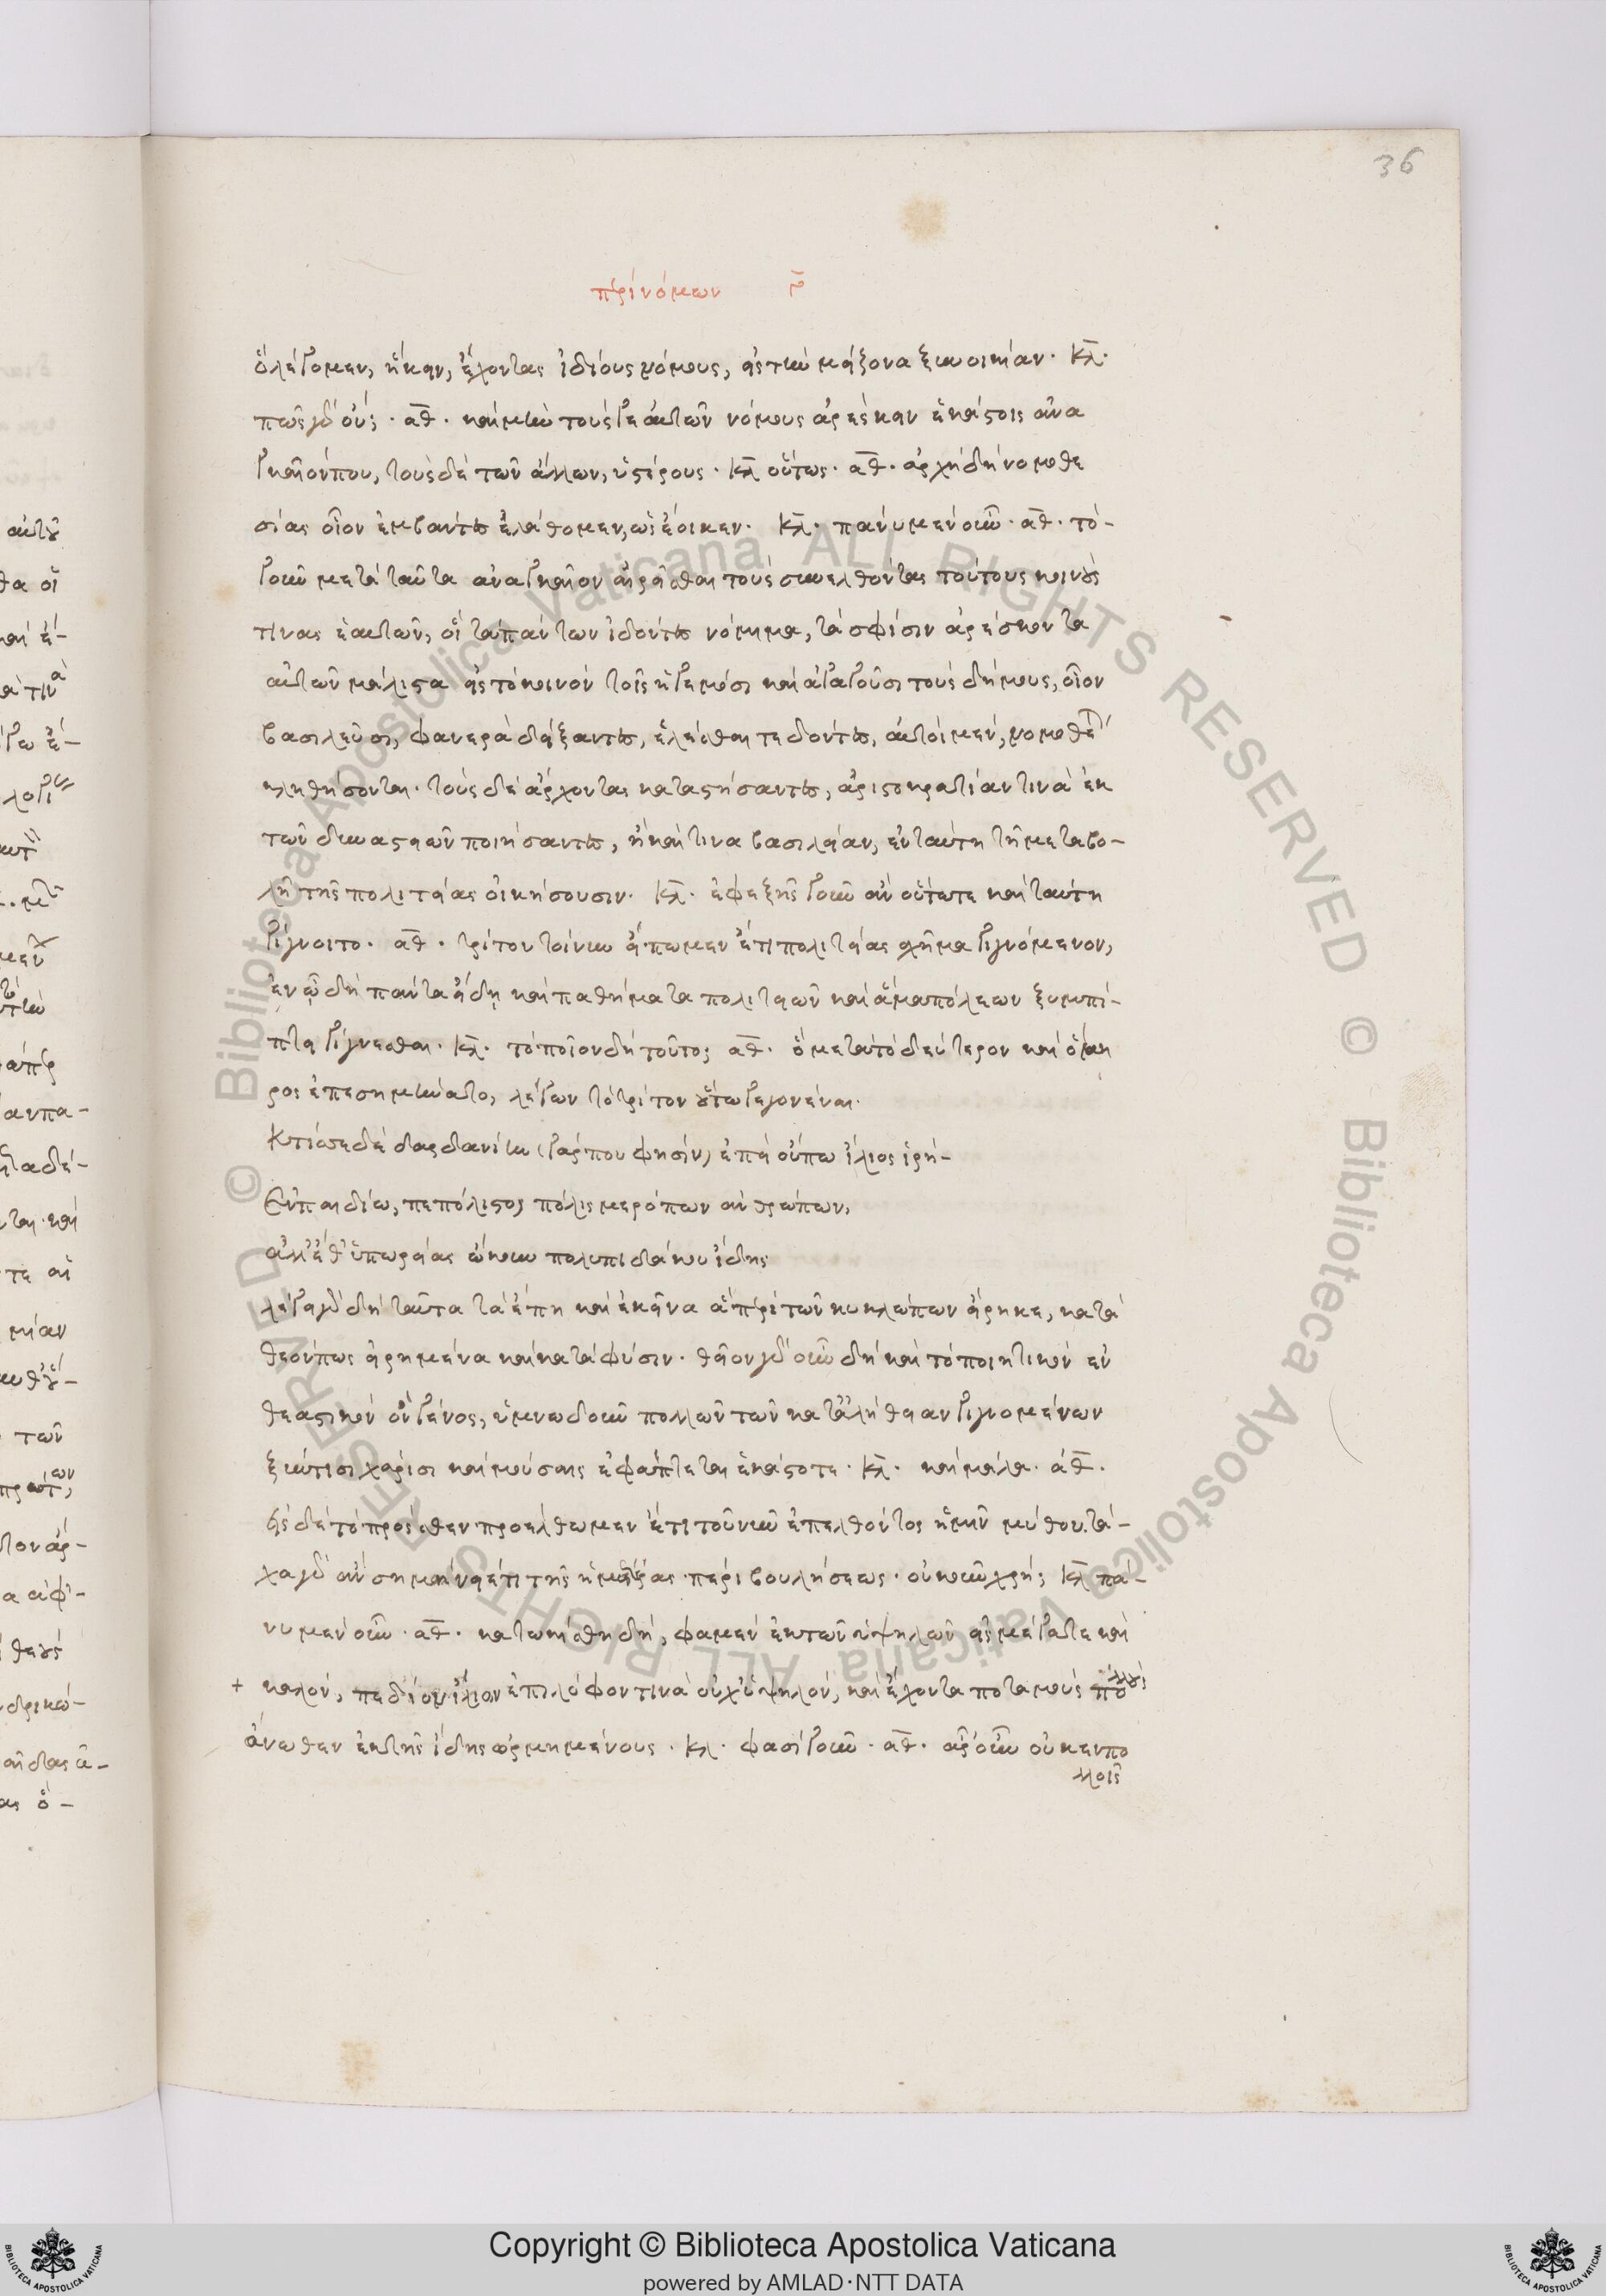 36
περὶ νόμων γ̄
ὃ λέγομεν, ἥκειν, ἔχοντας ἰδίους νόμους, εἰς τὴν μείζονα ξυνοικίαν. κλ.
πῶς γὰρ οὔ; ἀθ. καὶ μὴν τούς γε αὑτῶν νόμους ἀρέσκειν ἑκάστοις ἀνα
γκαῖόν που, τοὺς δὲ τῶν ἄλλων, ὑστέρους. κλ οὕτως. ἀθ. ἀρχῇ δὴ νομοθε
σίας οἷον ἐμβάντες ἐλάθομεν, ὡς ἔοικεν. κλ. πάνυ μὲν οὖν. ἀθ. τό-
γουν μετὰ ταῦτα ἀναγκαῖον αἱρεῖσθαι τοὺς συνελθόντας τούτους κοινούς
τινας ἑαυτῶν, οἳ τὰ πάντων ἰδόντες νόμιμα, τά σφισιν ἀρέσκοντα
αὐτῶν μάλιστα εἰς τὸ κοινὸν τοῖς ἡγεμόσι καὶ ἀγαγοῦσι τοὺς δήμους, οἷον
βασιλεῦσι, φανερὰ δείξαντες, ἑλέσθαι τε δόντες, αὐτοὶ μέν, νομοθέται
κληθήσονται. τοὺς δὲ ἄρχοντας καταστήσαντες, ἀριστοκρατίαν τινὰ ἐκ
τῶν δυναστειῶν ποιήσαντες, ἢ καί τινα βασιλείαν, ἐν ταύτῃ τῇ μεταβο-
λῇ τῆς πολιτείας οἰκήσουσιν. κλ. ἐφεξῆς γοῦν ἂν οὕτω τε καὶ ταύτῃ
γίγνοιτο. ἀθ. τρίτον τοίνυν εἴπωμεν ἔτι πολιτείας σχῆμα γιγνόμενον,
ἐν ᾧ δὴ πάντα εἴδη καὶ παθήματα πολιτειῶν καὶ ἅμα πόλεων ξυμπί-
πτει γίγνεσθαι. κλ. τὸ ποῖον δὴ τοῦτο; ἀθ. ὃ μετὰ τὸ δεύτερον καὶ ὅμη
ρος ἐπεσημήνατο, λέγων τὸ τρίτον οὕτω γεγονέναι.
Κτίσσε δὲ δαρδανίην (γάρ που φησίν) ἐπεὶ οὔπω ἴλιος ἱρή-
Ἐν πεδίῳ, πεπόλιστο, πόλις μερόπων ἀνθρώπων,
ἀλλ' ἔθ' ὑπωρείας ᾤκουν πολυπιδάκου ἴδης
λέγει γὰρ δὴ ταῦτα τὰ ἔπη καὶ ἐκεῖνα ἃ περὶ τῶν κυκλώπων εἴρηκε, κατὰ
θεόν πως εἰρημένα καὶ κατὰ φύσιν. θεῖον γὰρ οὖν δὴ καὶ τὸ ποιητικὸν ἐν
θεαστικὸν ὂν γένος, ὑμνῳδοῦν πολλῶν τῶν κατ' ἀλήθειαν γιγνομένων
ξύν τισι χάρισι καὶ μούσαις ἐφάπτεται ἑκάστοτε. κλ. καὶ μάλα. ἀθ.
εἰς δὲ τὸ πρόσθεν προέλθωμεν ἔτι τοῦ νῦν ἐπελθόντος ἡμῖν μύθου. τά-
χα γὰρ ἂν σημαίνει ἔτι τῆς ἡμετέρας περὶ βουλήσεως. οὐκοῦν χρή; κλ πά-
νυ μὲν οὖν. ἀθ. κατῳκίσθη δή, φαμέν ἐκ τῶν ὑψηλῶν εἰς μέγα τε καὶ
+ καλόν, πεδίον ἴλιον ἐπὶ λόφον τινὰ οὐχ ὑψηλόν, καὶ ἔχοντα ποταμοὺς πολλοὺς
ἄνωθεν ἐκ τῆς ἴδης ὡρμημένους. κλ. φασὶ γοῦν. ἀθ. ἆρ' οὖν οὐκ ἐν πο
λλοῖς
Copyright © Biblioteca Apostolica Vaticana
powered by AMLAD·NTT DATA